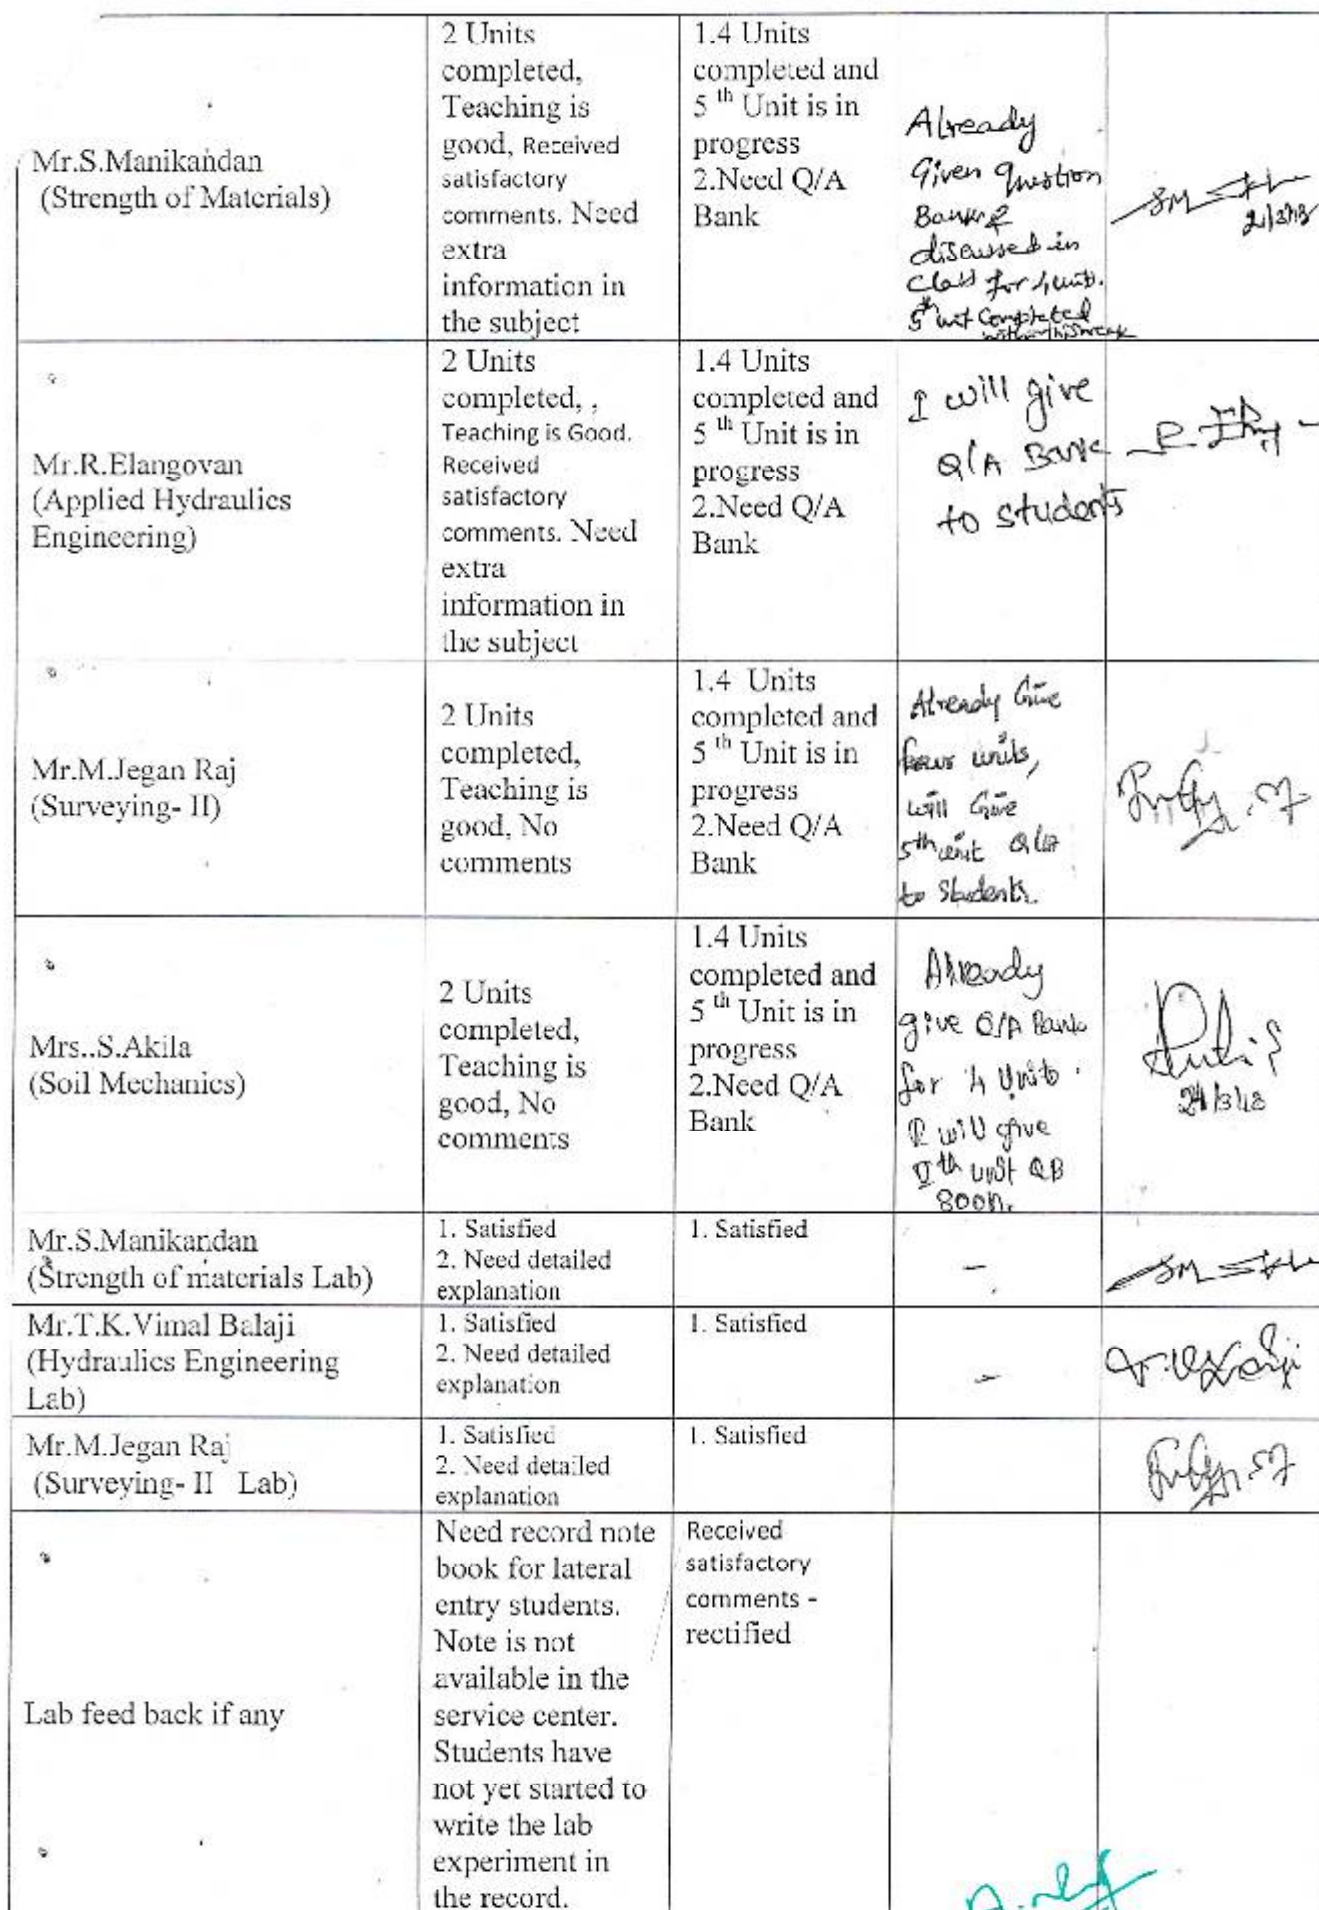 Mr.S.Manikandan
(Strength of Materials)
2 Units
completed,
Teaching is
good, Received
satisfactory
comments. Need
extra
information in
the subject
1.4 Units
completed and
5 th Unit is in
progress
2.Need Q/A
Bank
Already
Given question
Bank &
discussed in
Class for 4 unit.
5th unit Completed
within this week
Mr.R.Elangovan
(Applied Hydraulics
Engineering)
2 Units
completed, ,
Teaching is Good.
Received
satisfactory
comments. Need
extra
information in
the subject
1.4 Units
completed and
5 th Unit is in
progress
2.Need Q/A
Bank
I will give
Q/A Bank
to students
Mr.M.Jegan Raj
(Surveying- II)
2 Units
completed,
Teaching is
good, No
comments
1.4 Units
completed and
5 th Unit is in
progress
2.Need Q/A
Bank
Already Give
four units,
will Give
5th unit Q/A
to Students.
Mrs..S.Akila
(Soil Mechanics)
2 Units
completed,
Teaching is
good, No
comments
1.4 Units
completed and
5 th Unit is in
progress
2.Need Q/A
Bank
Already
give Q/A Bank
for 4 Units.
I will give
V th unit QB
soon.
24/3/18
Mr.S.Manikandan
(Strength of materials Lab)
1. Satisfied
2. Need detailed
explanation
1. Satisfied
-
Mr.T.K.Vimal Balaji
(Hydraulics Engineering
Lab)
1. Satisfied
2. Need detailed
explanation
1. Satisfied
-
Mr.M.Jegan Raj
(Surveying- II Lab)
1. Satisfied
2. Need detailed
explanation
1. Satisfied
Lab feed back if any
Need record note
book for lateral
entry students.
Note is not
available in the
service center.
Students have
not yet started to
write the lab
experiment in
the record.
Received
satisfactory
comments -
rectified